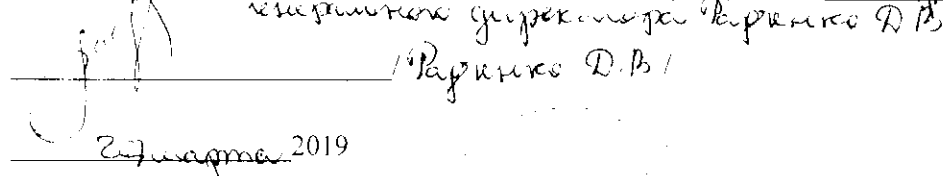 генерального директора Радченко Д В
/ Радченко Д.В /
27 марта 2019